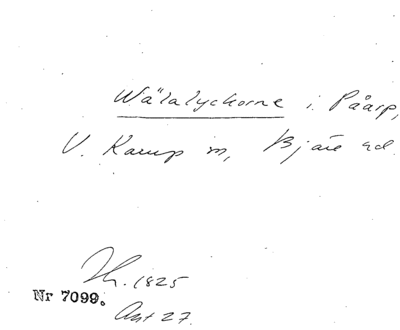 Wälalyckorne i Påarp,
V. Karup sn, Bjäre hd.
Nr 7099.
1825
Akt 27.